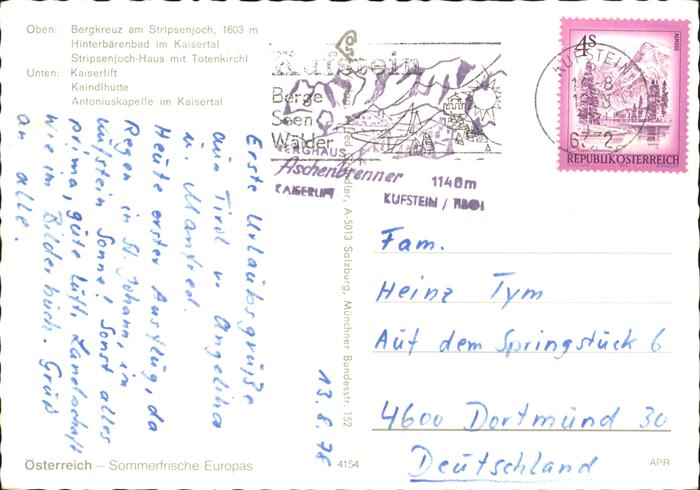 Oben: Bergkreuz am Stripsenjoch, 1603 m
Hinterbärenbad im Kaisertal
Stripsenjoch-Haus mit Totenkirchl
Unten: Kaiserlift
Kaindlhütte
Antoniuskapelle im Kaisertal
Kufstein
Berge
Seen
Wälder
BERGHAUS
Aschenbrenner 1140m
KAISERLIFT KUFSTEIN / TIROL
KUFSTEIN
4S
ALMSEE
REPUBLIK ÖSTERREICH
A-5013 Salzburg, Münchner Bundesstr. 152
Erste Urlaubsgrüße
aus Tirol v. Angelika
u. Manfred.
Heute erster Ausflug, da
Regen in St. Johann, in
Kufstein Sonne! Sonst alles
prima, gute Luft, Landschaft
wie im Bilderbuch. Gruß
an alle.
13.8.78
Fam.
Heinz Tym
Auf dem Springstück 6
4600 Dortmund 30
Deutschland
Österreich – Sommerfrische Europas
4154
APR